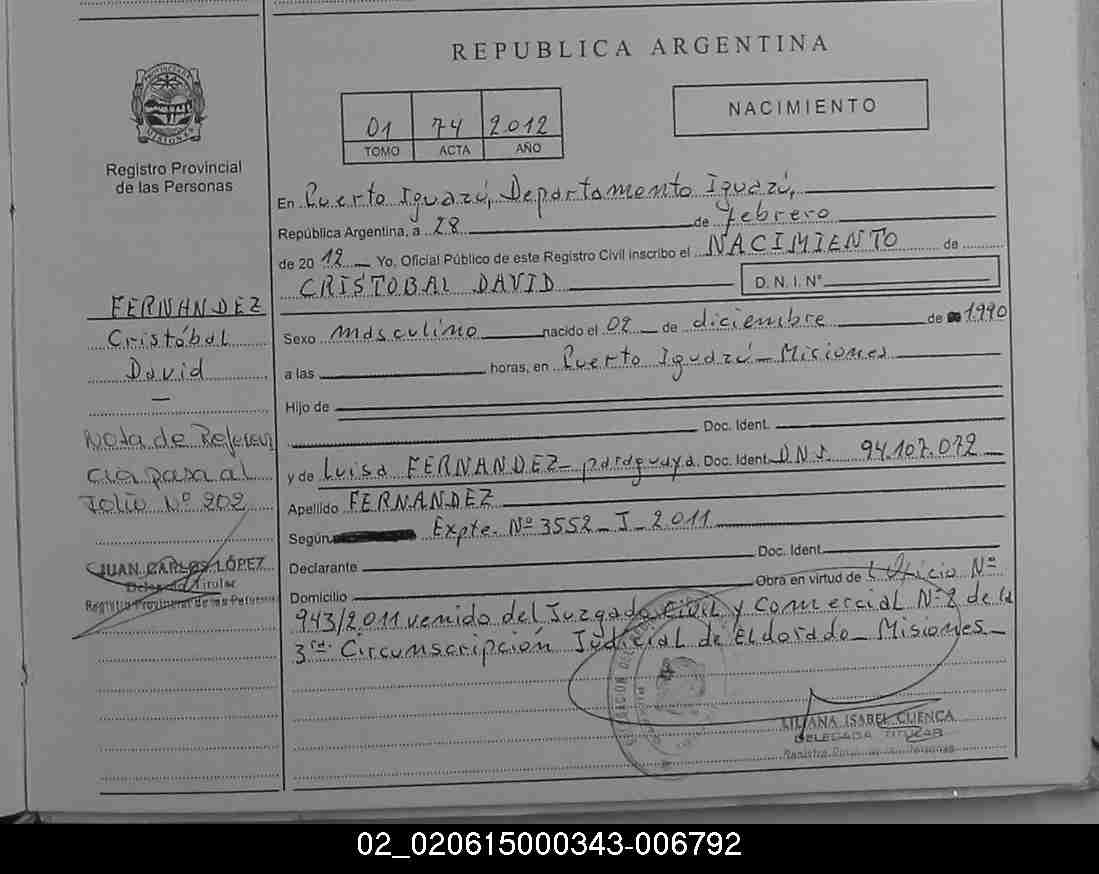 REPUBLICA ARGENTINA
PROVINCIA DE
MISIONES
Registro Provincial
de las Personas
01 74 2.012
TOMO ACTA AÑO
NACIMIENTO
En Puerto Iguazú, Departamento Iguazú,
República Argentina, a 28 de febrero
de 20 12 Yo, Oficial Público de este Registro Civil inscribo el NACIMIENTO de
CRISTOBAL DAVID D.N.I.Nº
Sexo masculino nacido el 02 de diciembre de 1.990
a las horas, en Puerto Iguazú - Misiones
Hijo de
Doc. Ident.
y de Luisa FERNANDEZ - paraguaya. Doc. Ident. D.N.I. 94.107.072
Apellido FERNANDEZ
Según Expte. Nº 3552 - I - 2011
Declarante Doc. Ident.
Domicilio Obra en virtud de Oficio Nº
943/2.011 venido del Juzgado Civil y Comercial Nº 2 de la
3ra. Circunscripción Judicial de Eldorado - Misiones -
LILIANA ISABEL CUENCA
DELEGADA TITULAR
Registro Prov. de las Personas
FERNANDEZ
Cristóbal
David
Nota de Referen
cia pasa al
folio Nº 202
JUAN CARLOS LÓPEZ
Delegado Titular
Registro Provincial de las Personas
02_020615000343-006792